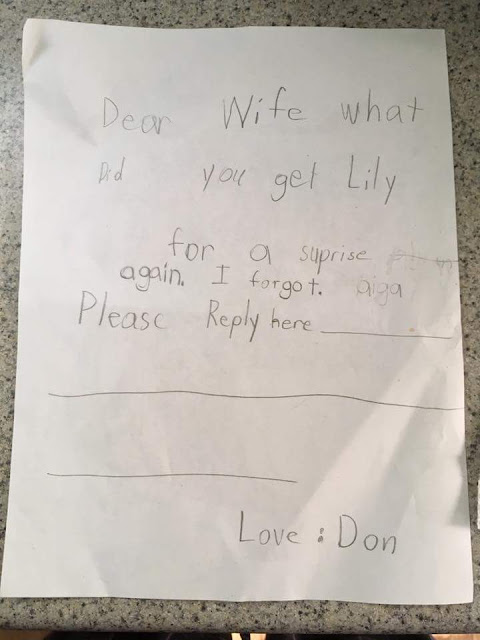 Dear Wife what
Did you get Lily
for a suprise
again. I forgot. aiga
Please Reply here
Love : Don